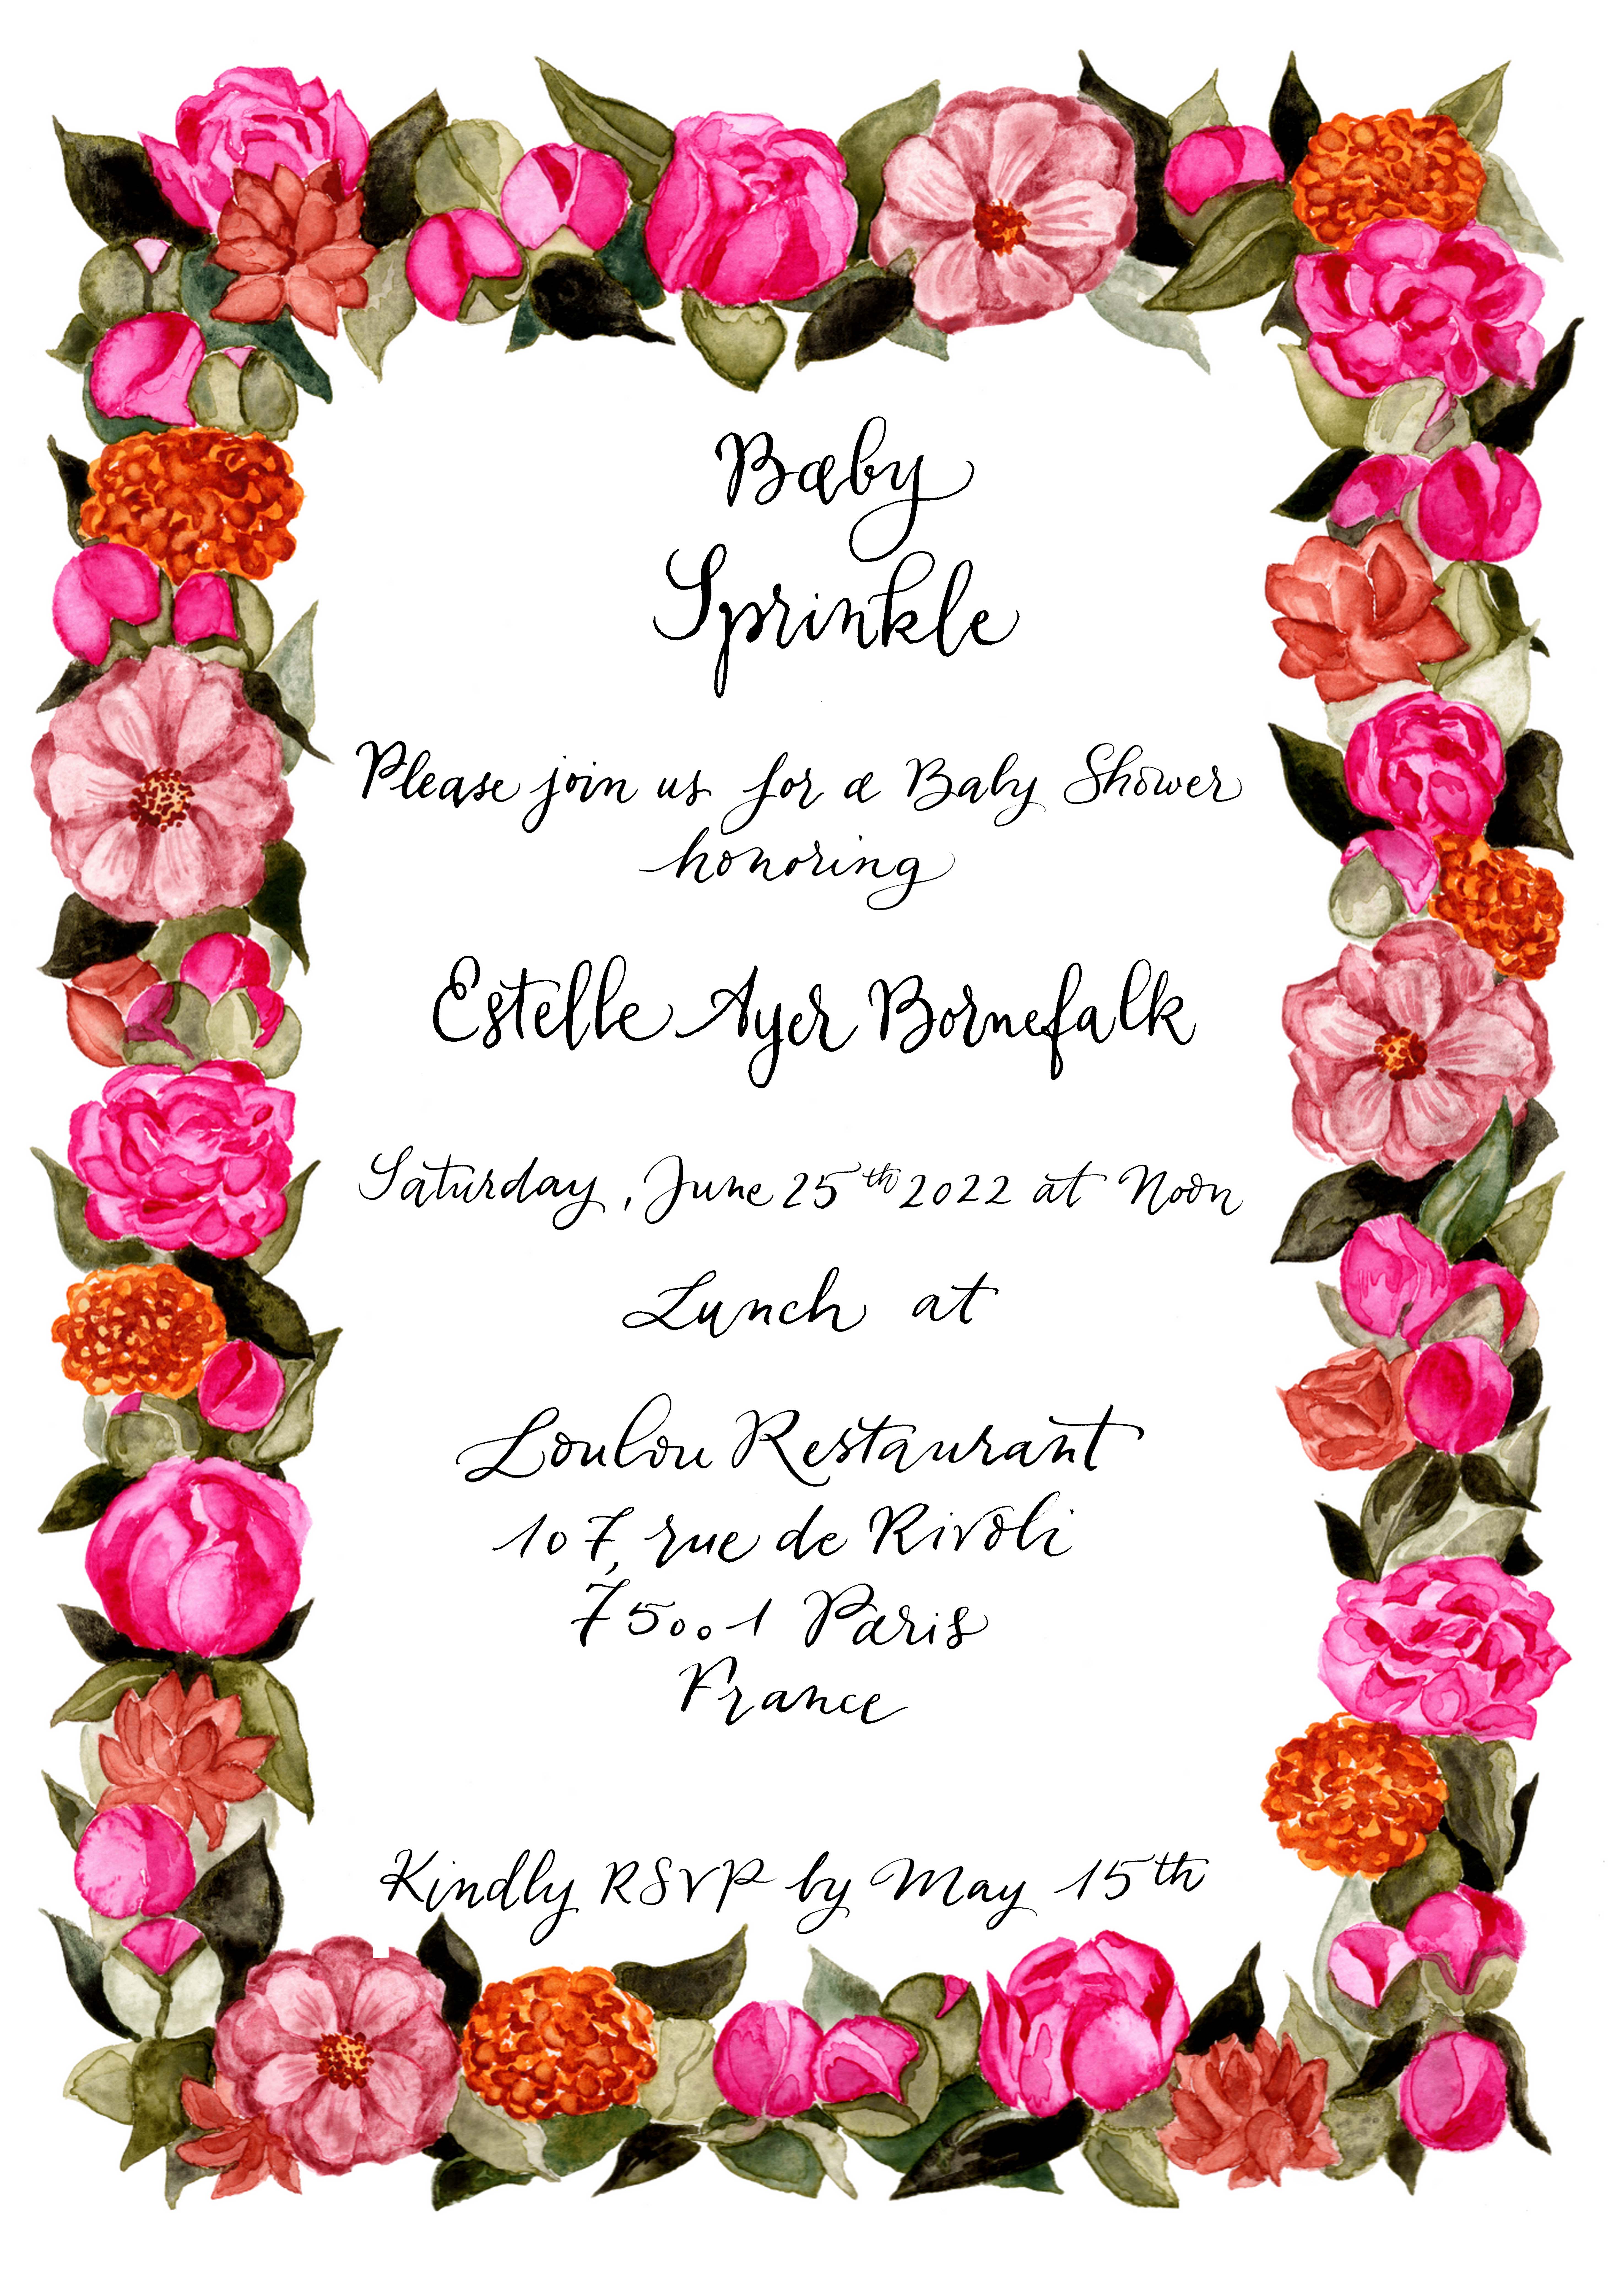 Baby
Sprinkle
Please join us for a Baby Shower
honoring
Estelle Ayer Bornefalk
Saturday, June 25th 2022 at Noon
Lunch at
Loulou Restaurant
107, rue de Rivoli
75001 Paris
France
Kindly RSVP by May 15th